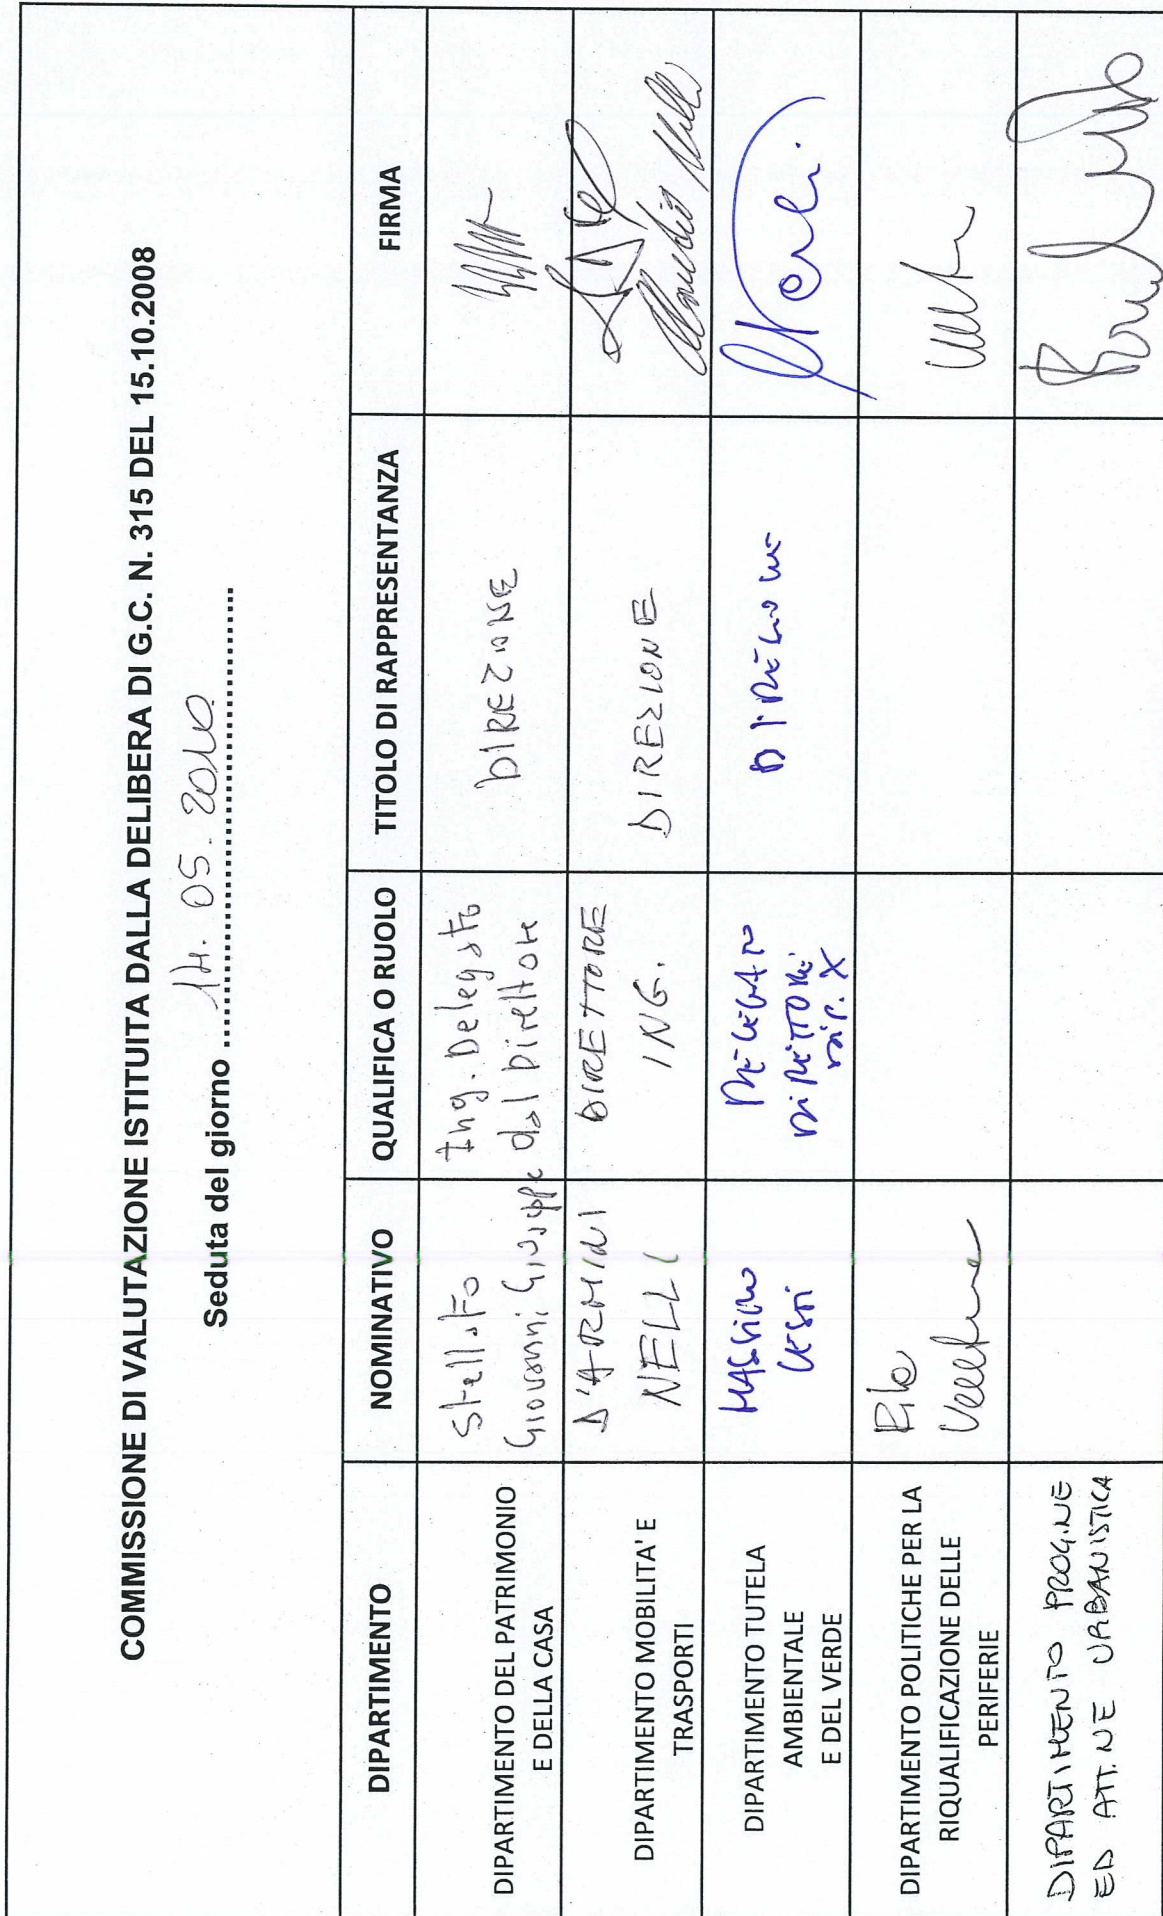 COMMISSIONE DI VALUTAZIONE ISTITUITA DALLA DELIBERA DI G.C. N. 315 DEL 15.10.2008
Seduta del giorno 14. 05. 2010
DIPARTIMENTO NOMINATIVO QUALIFICA O RUOLO TITOLO DI RAPPRESENTANZA FIRMA
DIPARTIMENTO DEL PATRIMONIO
E DELLA CASA
Stellato
Giovanni Giuseppe
Ing. Delegato
dal Direttore
DIREZIONE
DIPARTIMENTO MOBILITA' E
TRASPORTI
D'ARMINI
NELLI
DIRETTORE
ING.
DIREZIONE
DIPARTIMENTO TUTELA
AMBIENTALE
E DEL VERDE
MASSIMO
DELEGATO
DIRETTORE
DIP. X
DIREZIONE
DIPARTIMENTO POLITICHE PER LA
RIQUALIFICAZIONE DELLE
PERIFERIE
DIPARTIMENTO PROG.NE
ED ATT.NE URBANISTICA